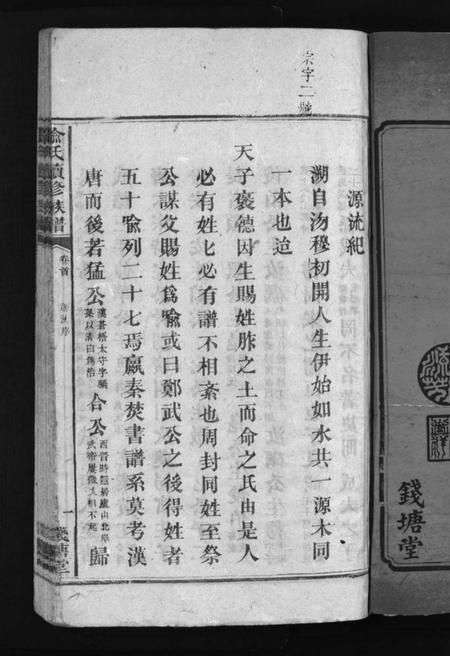 錢塘堂
宗字二號
源流紀
溯自汤穆初開人生伊始如水共一源木同
一本也迨
天子褒德因生賜姓胙之土而命之氏由是人
必有姓匕必有譜不相紊也周封同姓至祭
公謀父賜姓爲喩或曰鄭武公之後得姓者
五十喩列二十七焉嬴秦焚書譜系莫考漢
唐而後若猛公漢蒼梧太守字驕孫以清白爲治合公西晋時隱於廬山北岸武帝屢徵久相不起歸
喻氏續修族譜
卷首
源流序
一
錢塘堂